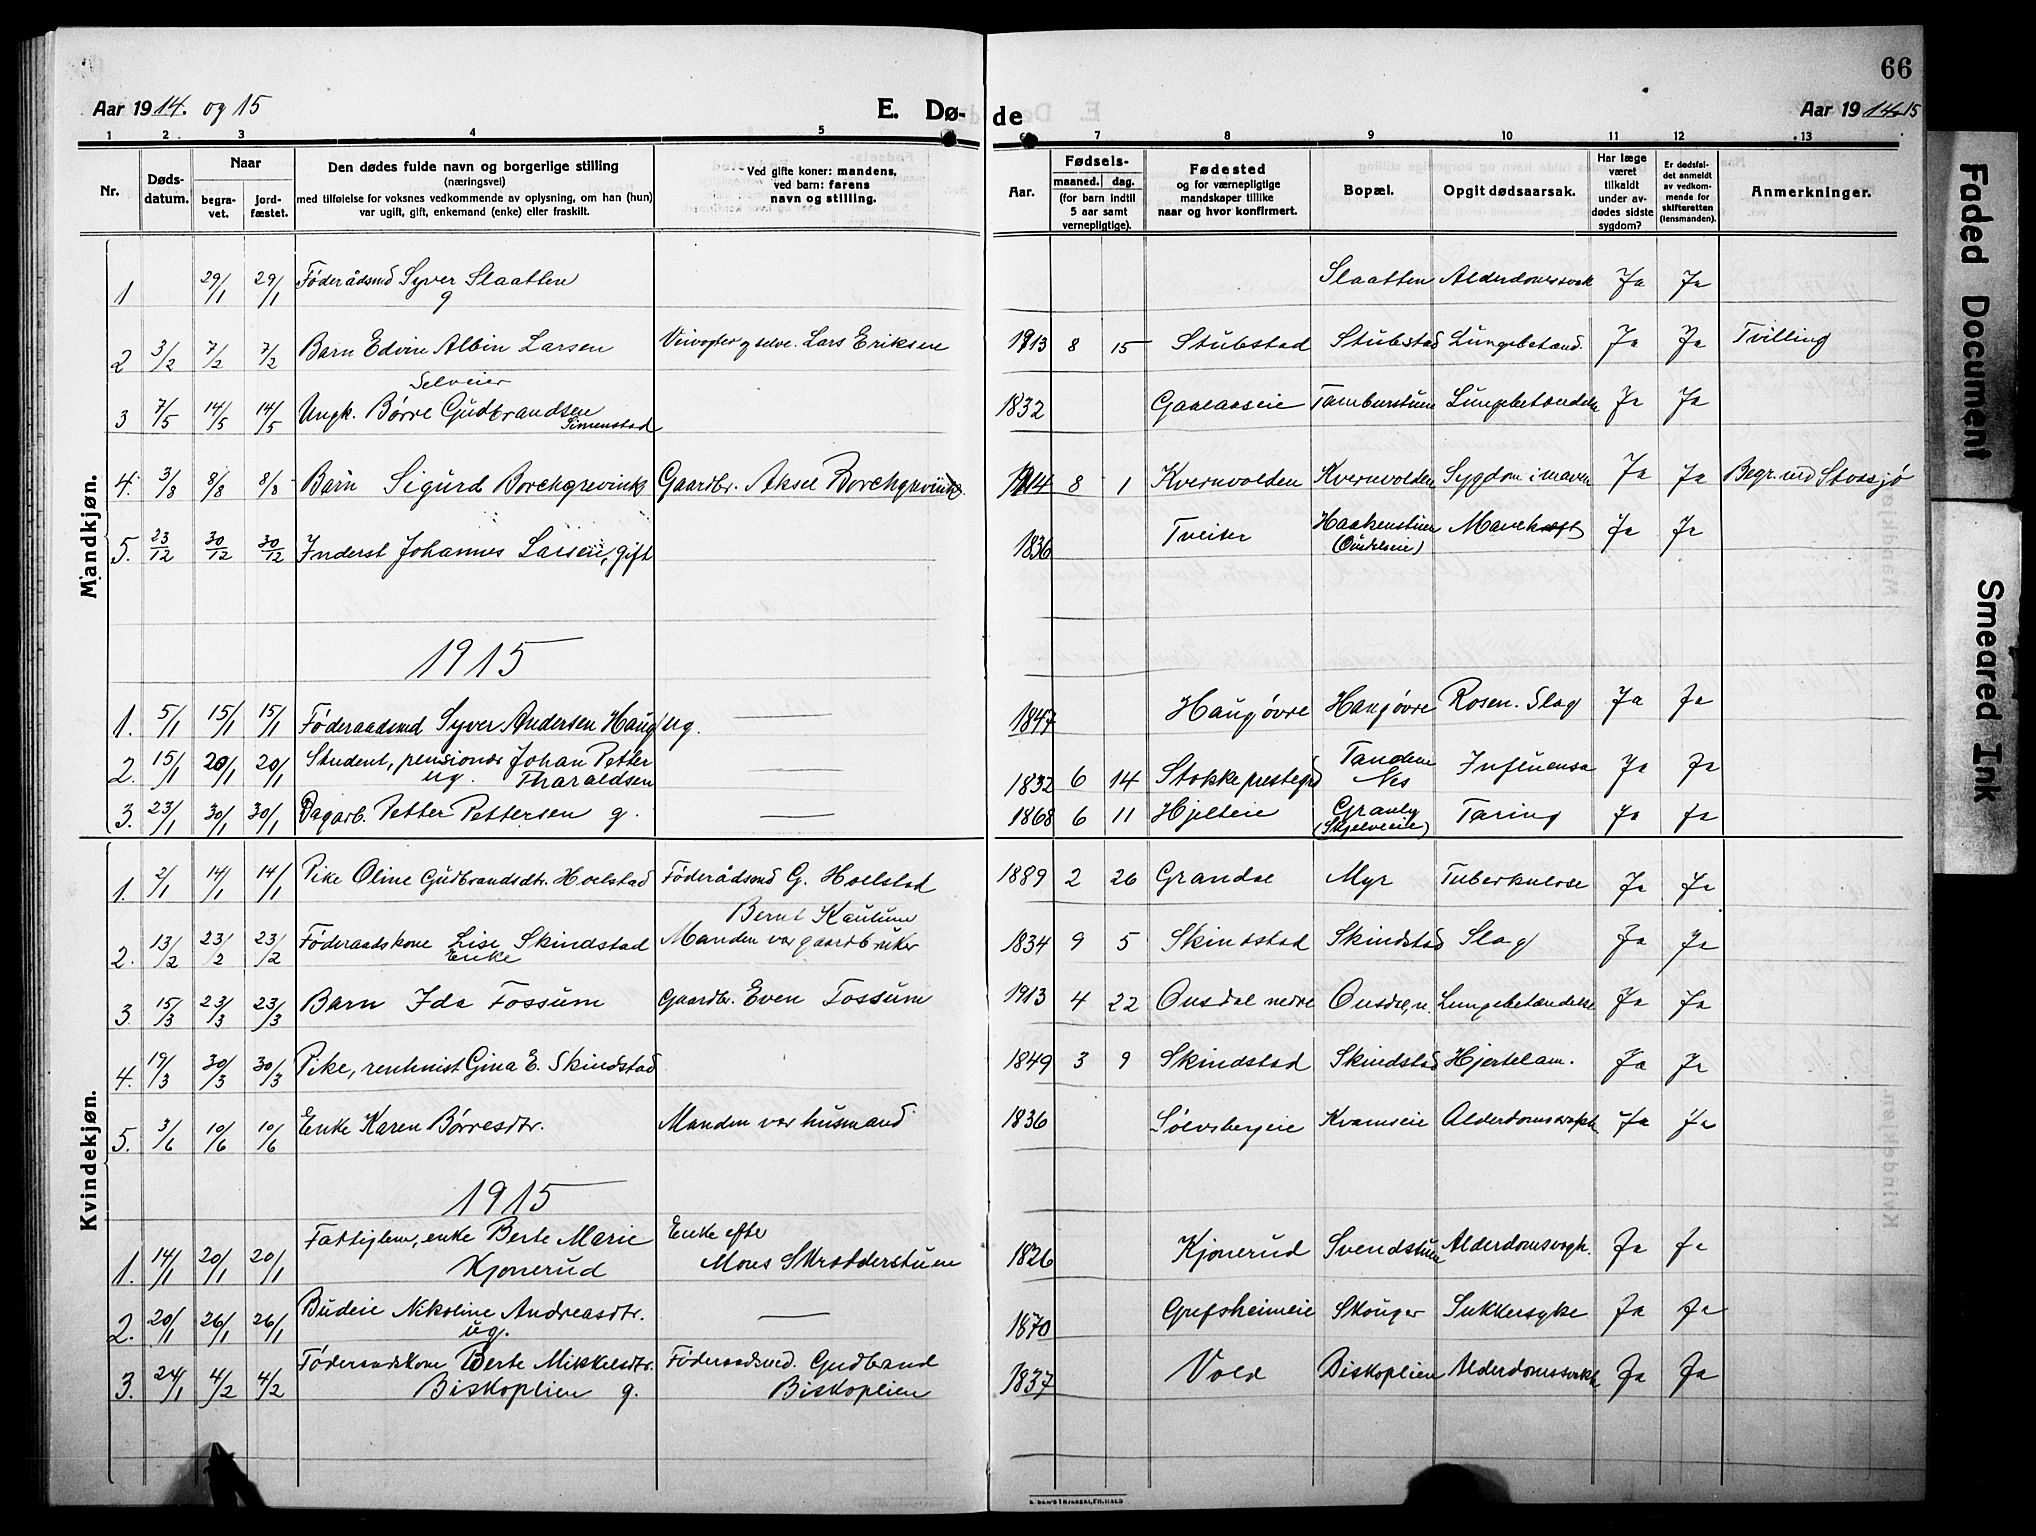 66
Aar 1914. og 15
E. Dø-
de
Aar 1914 15
1 2 3 4 5 6 7 8 9 10 11 12 13
Nr.
Døds-
datum.
Naar
begra-
vet.
jord-
fæstet.
Den dødes fulde navn og borgerlige stilling
(næringsvei)
med tilføielse for voksnes vedkommende av oplysning, om han (hun)
var ugift, gift, enkemand (enke) eller fraskilt.
Ved gifte koner: mandens,
ved barn: farens
navn og stilling.
Aar.
Fødsels-
maaned. dag.
(for barn indtil
5 aar samt
vernepligtige).
Fødested
og for værnepligtige
mandskaper tillike
naar og hvor konfirmert.
Bopæl.
Opgit dødsaarsak.
Har læge
været
tilkaldt
under av-
dødes sidste
sygdom?
Er dødsfal-
det anmeldt
av vedkom-
mende for
skifteretten
(lensmanden).
Anmerkninger.
Mandkjøn.
1 29/1 29/1 Føderådsmd Syver Slaatten g Slaatten Alderdomssvak Ja Ja
2 3/2 7/2 7/2 Barn Edvin Albin Larsen Veivogter og selve. Lars Eriksen 1913 8 15 Stubstad Stubstad Lungebetænd. Ja Ja Tvilling
Selveier
3 7/5 14/5 14/5 Ungk. Børre Gudbrandsen Simenstad 1832 Gaalaaseie Tamburstuen Lungebetændelse Ja Ja
4. 3/8 8/8 8/8 Barn Sigurd Borchgrevink Gaardbr. Aksel Borchgrevink 1914 8 1 Kvernvolden Kvernvolden Sygdom i maven Ja Ja Begr. ved Stvasjø
5. 23/12 30/12 30/12 Inderst Johannes Larsen, gift 1836 Tveiter Haakenstuen Mavekræft Ja Ja
1915
1. 5/1 15/1 15/1 Føderaadsmd Syver Andersen Haug ug. 1847 Haug øvre Haug øvre Rosen. Slag Ja Ja
2. 15/1 20/1 20/1 Student, pensionær Johan Petter
ug. Tharaldsen 1832 6 14 Stokke prestegrd Nes Influensa Ja Ja
3. 23/1 30/1 30/1 Dagarb. Petter Pettersen g. 1868 6 11 Hjelteie Granly
(Skjelveeie) Taring Ja Ja
Kvindekjøn.
1. 2/1 14/1 14/1 Pike Oline Gudbrandsdtr. Hoelstad Føderådsmd G. Hoelstad 1889 2 26 Grandal Myr Tuberkulose Ja Ja
Bernt Kaulum
2. 13/2 23/2 23/2 Føderaadskone Lise Skindstad Manden var gaardbruker 1834 9 5 Skindstad Skindstad Slag Ja Ja
Enke
3. 15/3 23/3 23/3 Barn Ida Fossum Gaardbr. Even Fossum 1913 4 22 Onsdal nedre Onsdal, n. Lungebetændelse Ja Ja
4. 19/3 30/3 30/3 Pike, rentenist Gina E. Skindstad 1849 3 9 Skindstad Skindstad Hjertelam. Ja Ja
5. 3/6 10/6 10/6 Enke Karen Børresdtr. Manden var husmand 1836 Sølvsbergeie Kvameie Alderdomssvakh Ja Ja
1915
1. 14/1 20/1 20/1 Fattiglem, enke Berte Marie
Kjonerud Enke efter
Mons Skrædderstuen 1826 Kjonerud Svendstuen Alderdomsvagh. Ja Ja
2. 20/1 26/1 26/1 Budeie Nikoline Andreasdtr.
ug. 1870 Grefsheimeie Skouger Sukkersyke Ja Ja
3. 24/1 4/2 4/2 Føderaadskone Berte Mikkelsdtr.
Biskoplien g. Føderaadsmd. Gudbrand
Biskoplien 1837 Vold Biskoplien Alderdomssvakh Ja Ja
Faded Document
Smeared Ink